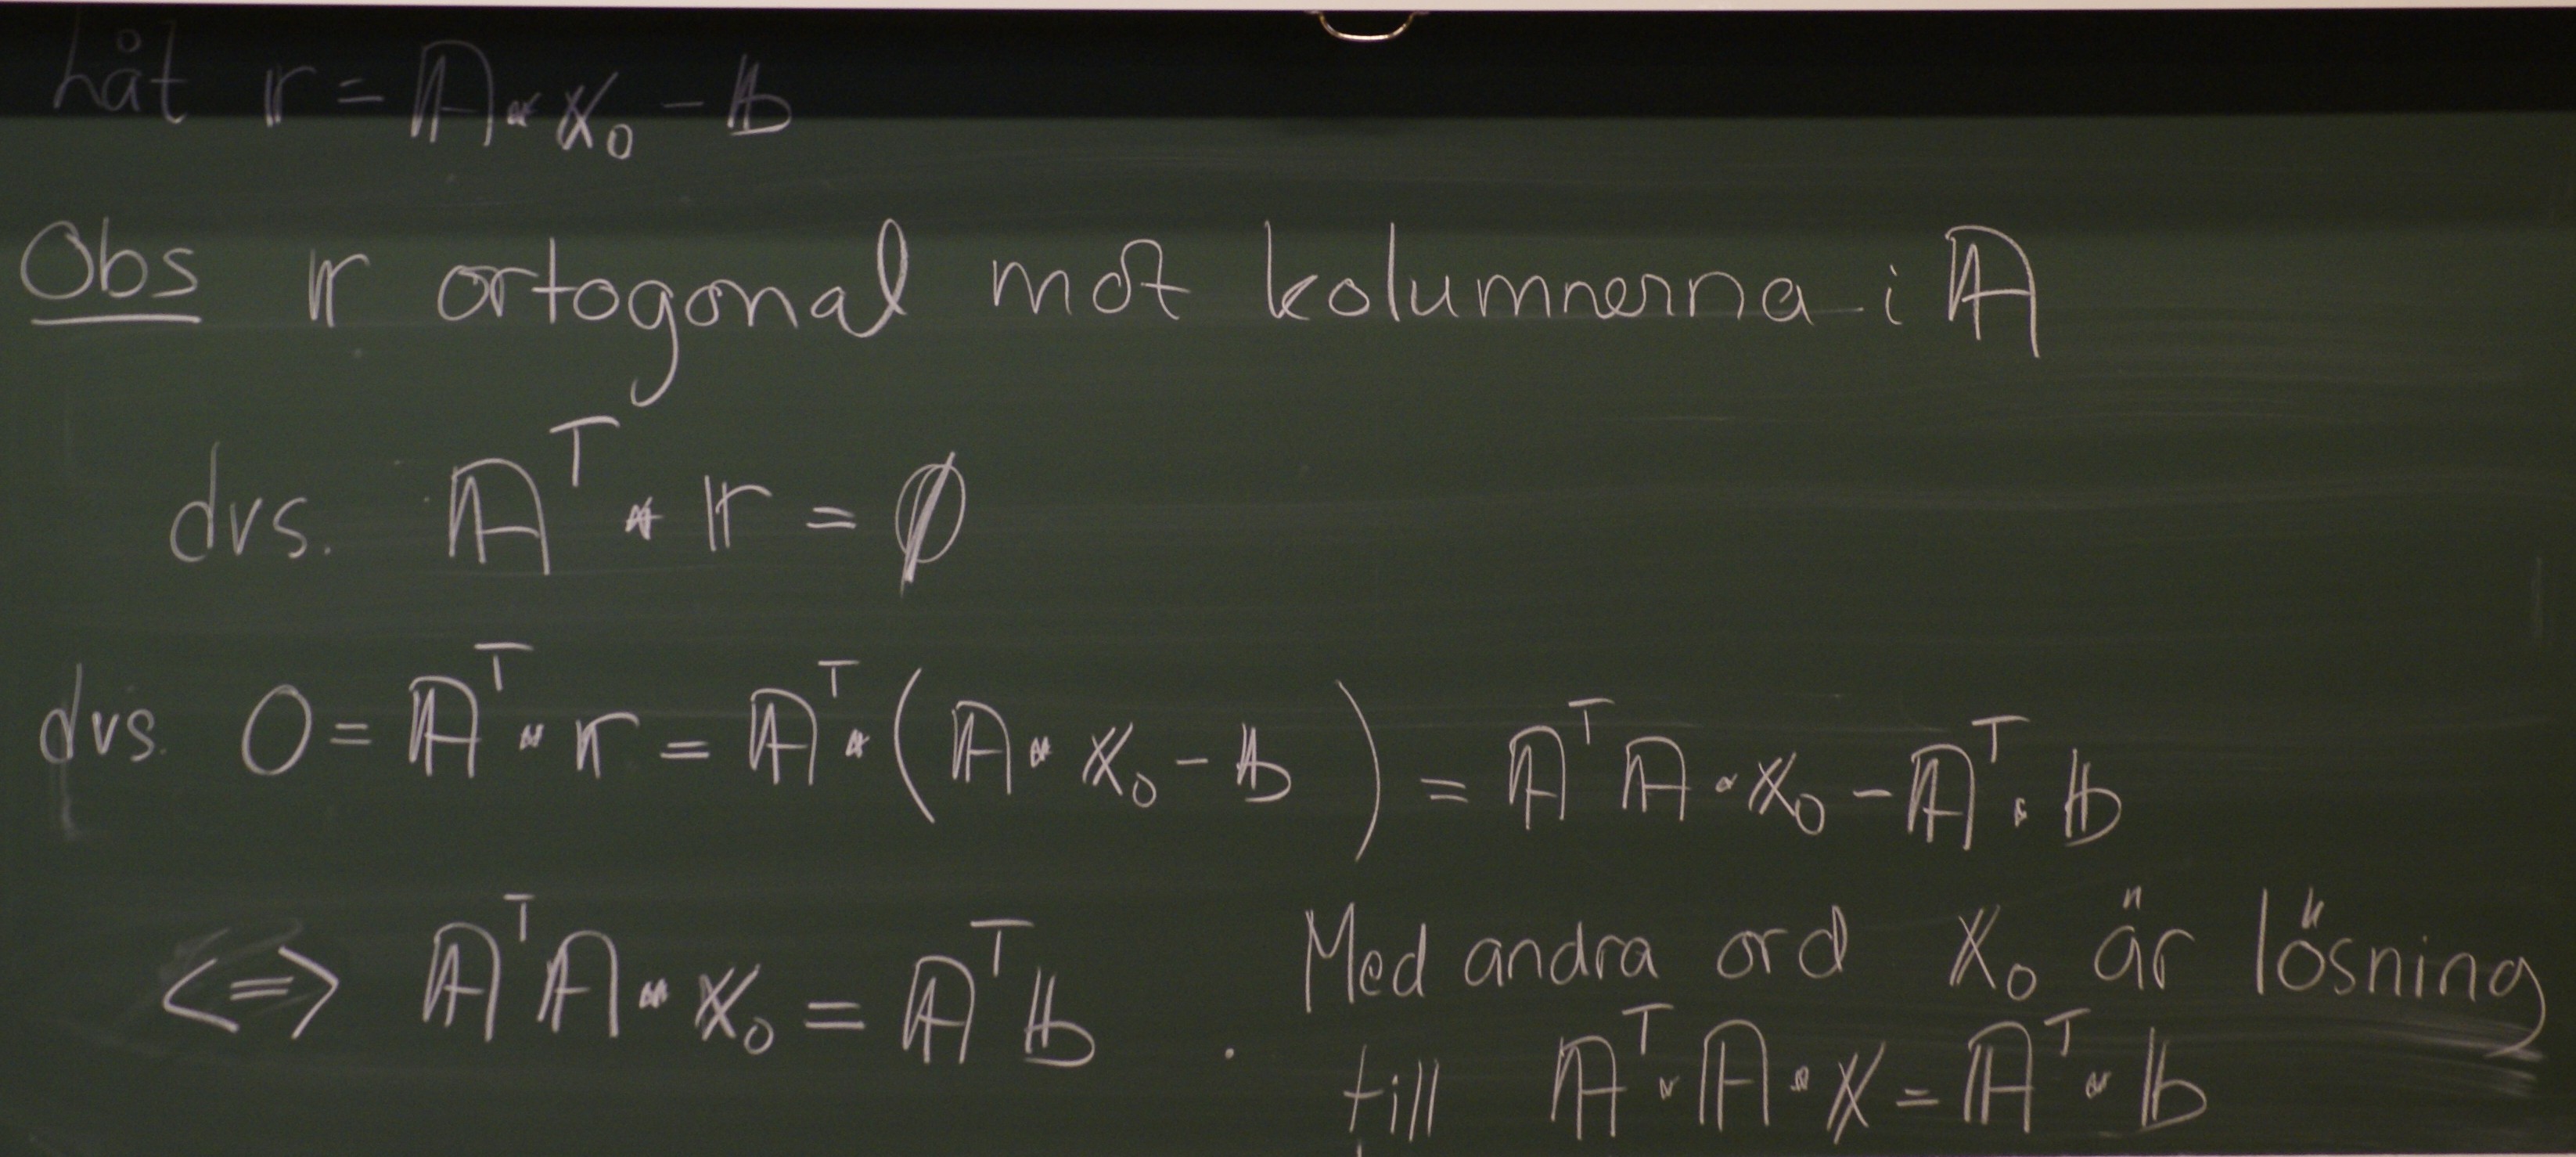 Låt 𝕣 = 𝔸·𝕩₀ - 𝕓
Obs 𝕣 ortogonal mot kolumnerna i 𝔸
dvs. 𝔸ᵀ · 𝕣 = 𝟘
dvs. 0 = 𝔸ᵀ · 𝕣 = 𝔸ᵀ · (𝔸 · 𝕩₀ - 𝕓) = 𝔸ᵀ𝔸 · 𝕩₀ - 𝔸ᵀ · 𝕓
<=> 𝔸ᵀ𝔸 · 𝕩₀ = 𝔸ᵀ𝕓 . Med andra ord 𝕩₀ är lösning
till 𝔸ᵀ · 𝔸 · 𝕩 = 𝔸ᵀ · 𝕓